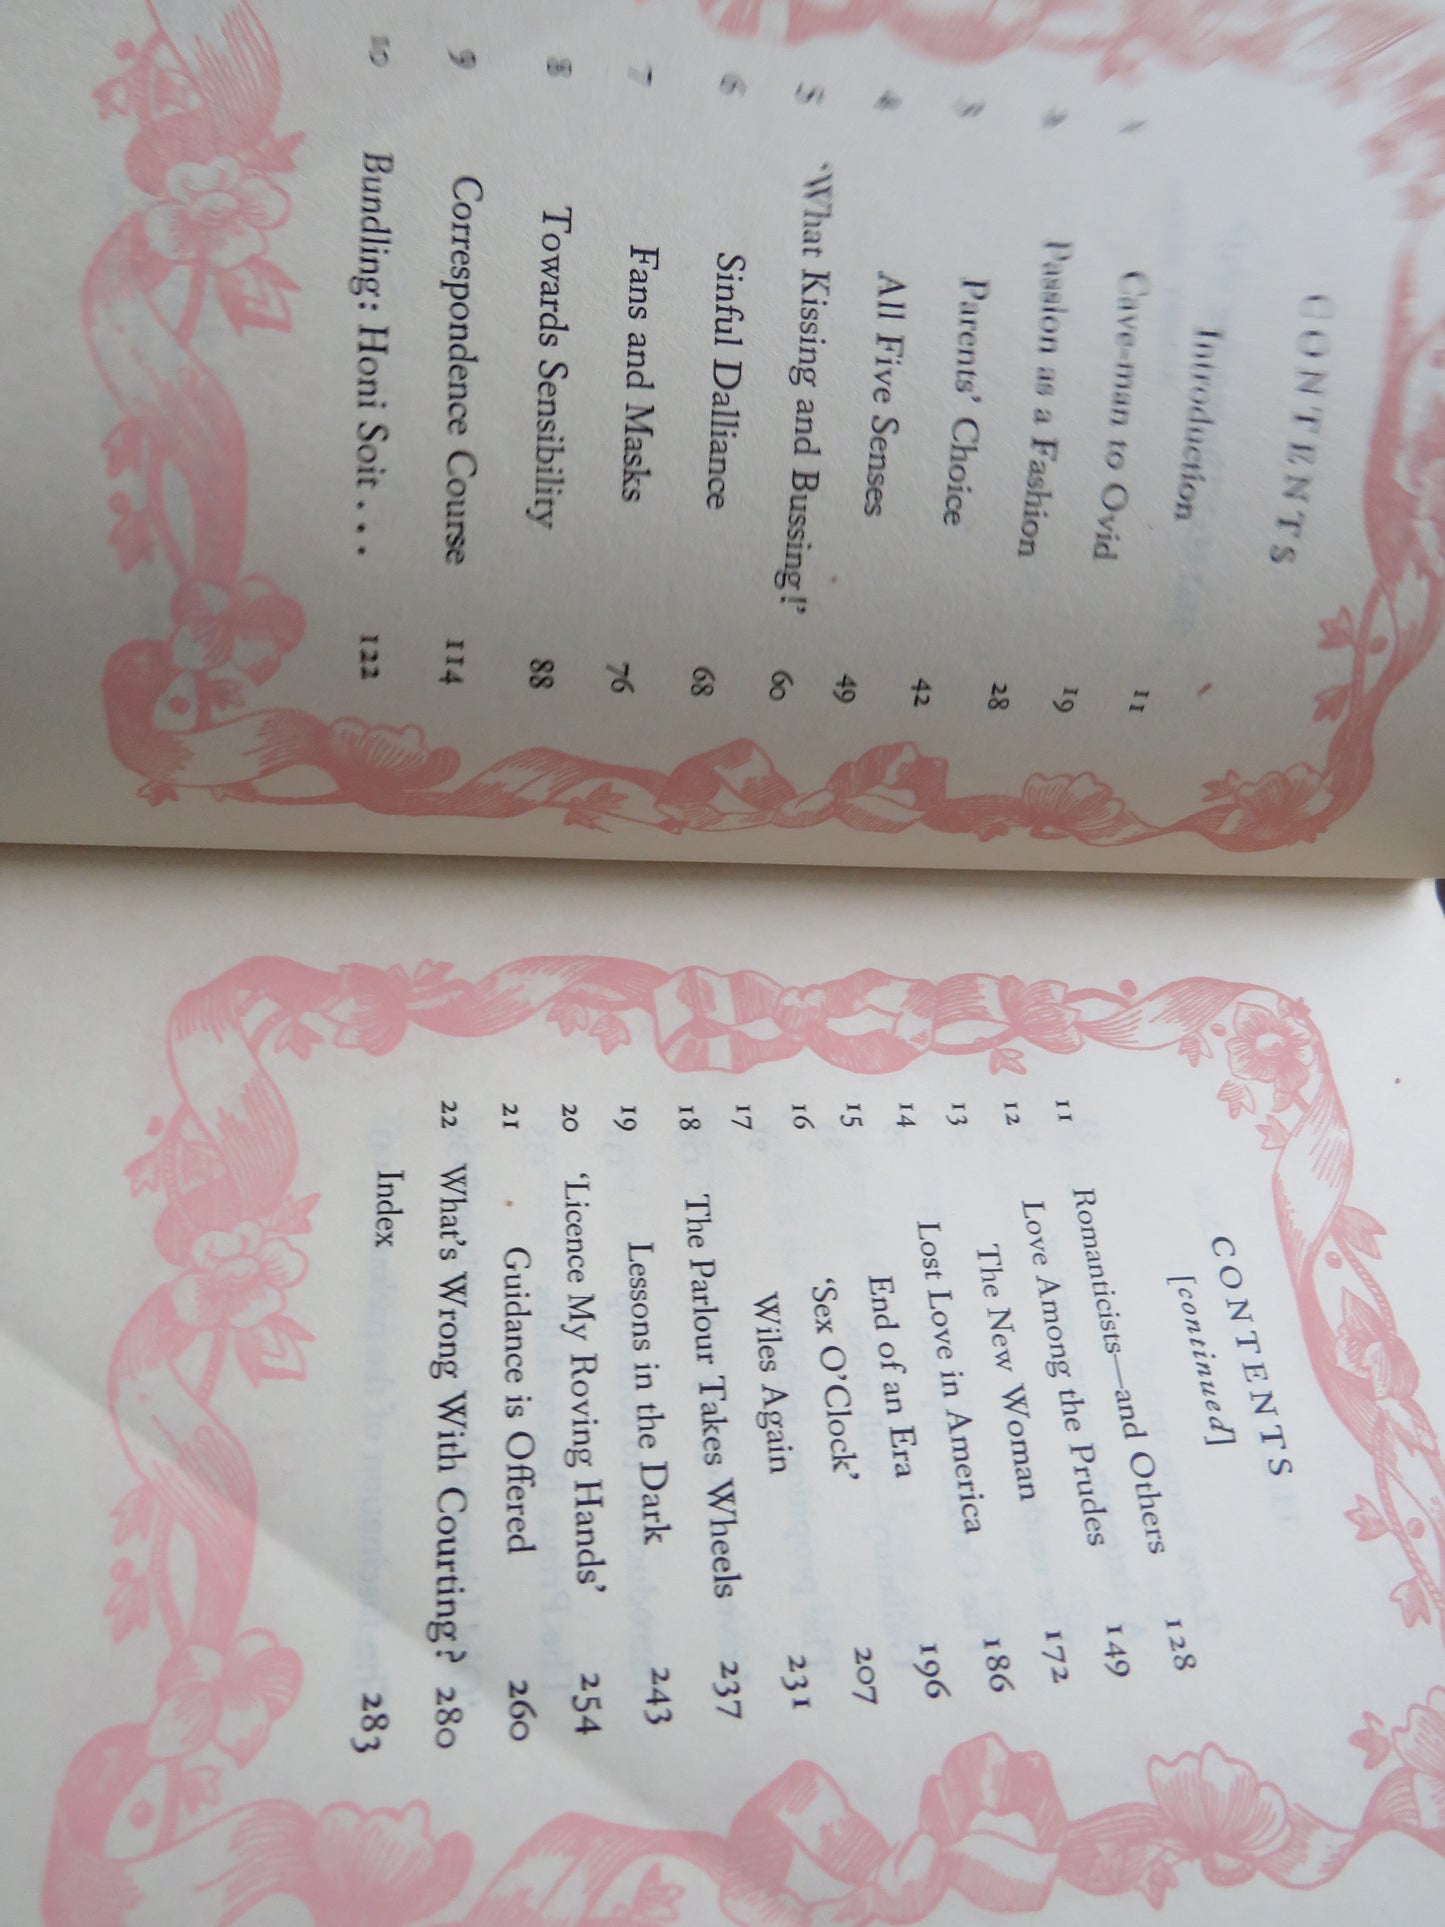 CONTENTS
Introduction 11
1 Cave-man to Ovid 19
2 Passion as a Fashion 28
3 Parents' Choice 42
4 All Five Senses 49
5 'What Kissing and Bussing!' 60
6 Sinful Dalliance 68
7 Fans and Masks 76
8 Towards Sensibility 88
9 Correspondence Course 114
10 Bundling: Honi Soit . . . 122
CONTENTS
[continued]
11 Romanticists—and Others 128
12 Love Among the Prudes 149
13 The New Woman 172
14 Lost Love in America 186
15 End of an Era 196
16 'Sex O'Clock' 207
17 Wiles Again 231
18 The Parlour Takes Wheels 237
19 Lessons in the Dark 243
20 'Licence My Roving Hands' 254
21 Guidance is Offered 260
22 What's Wrong With Courting? 280
Index 283